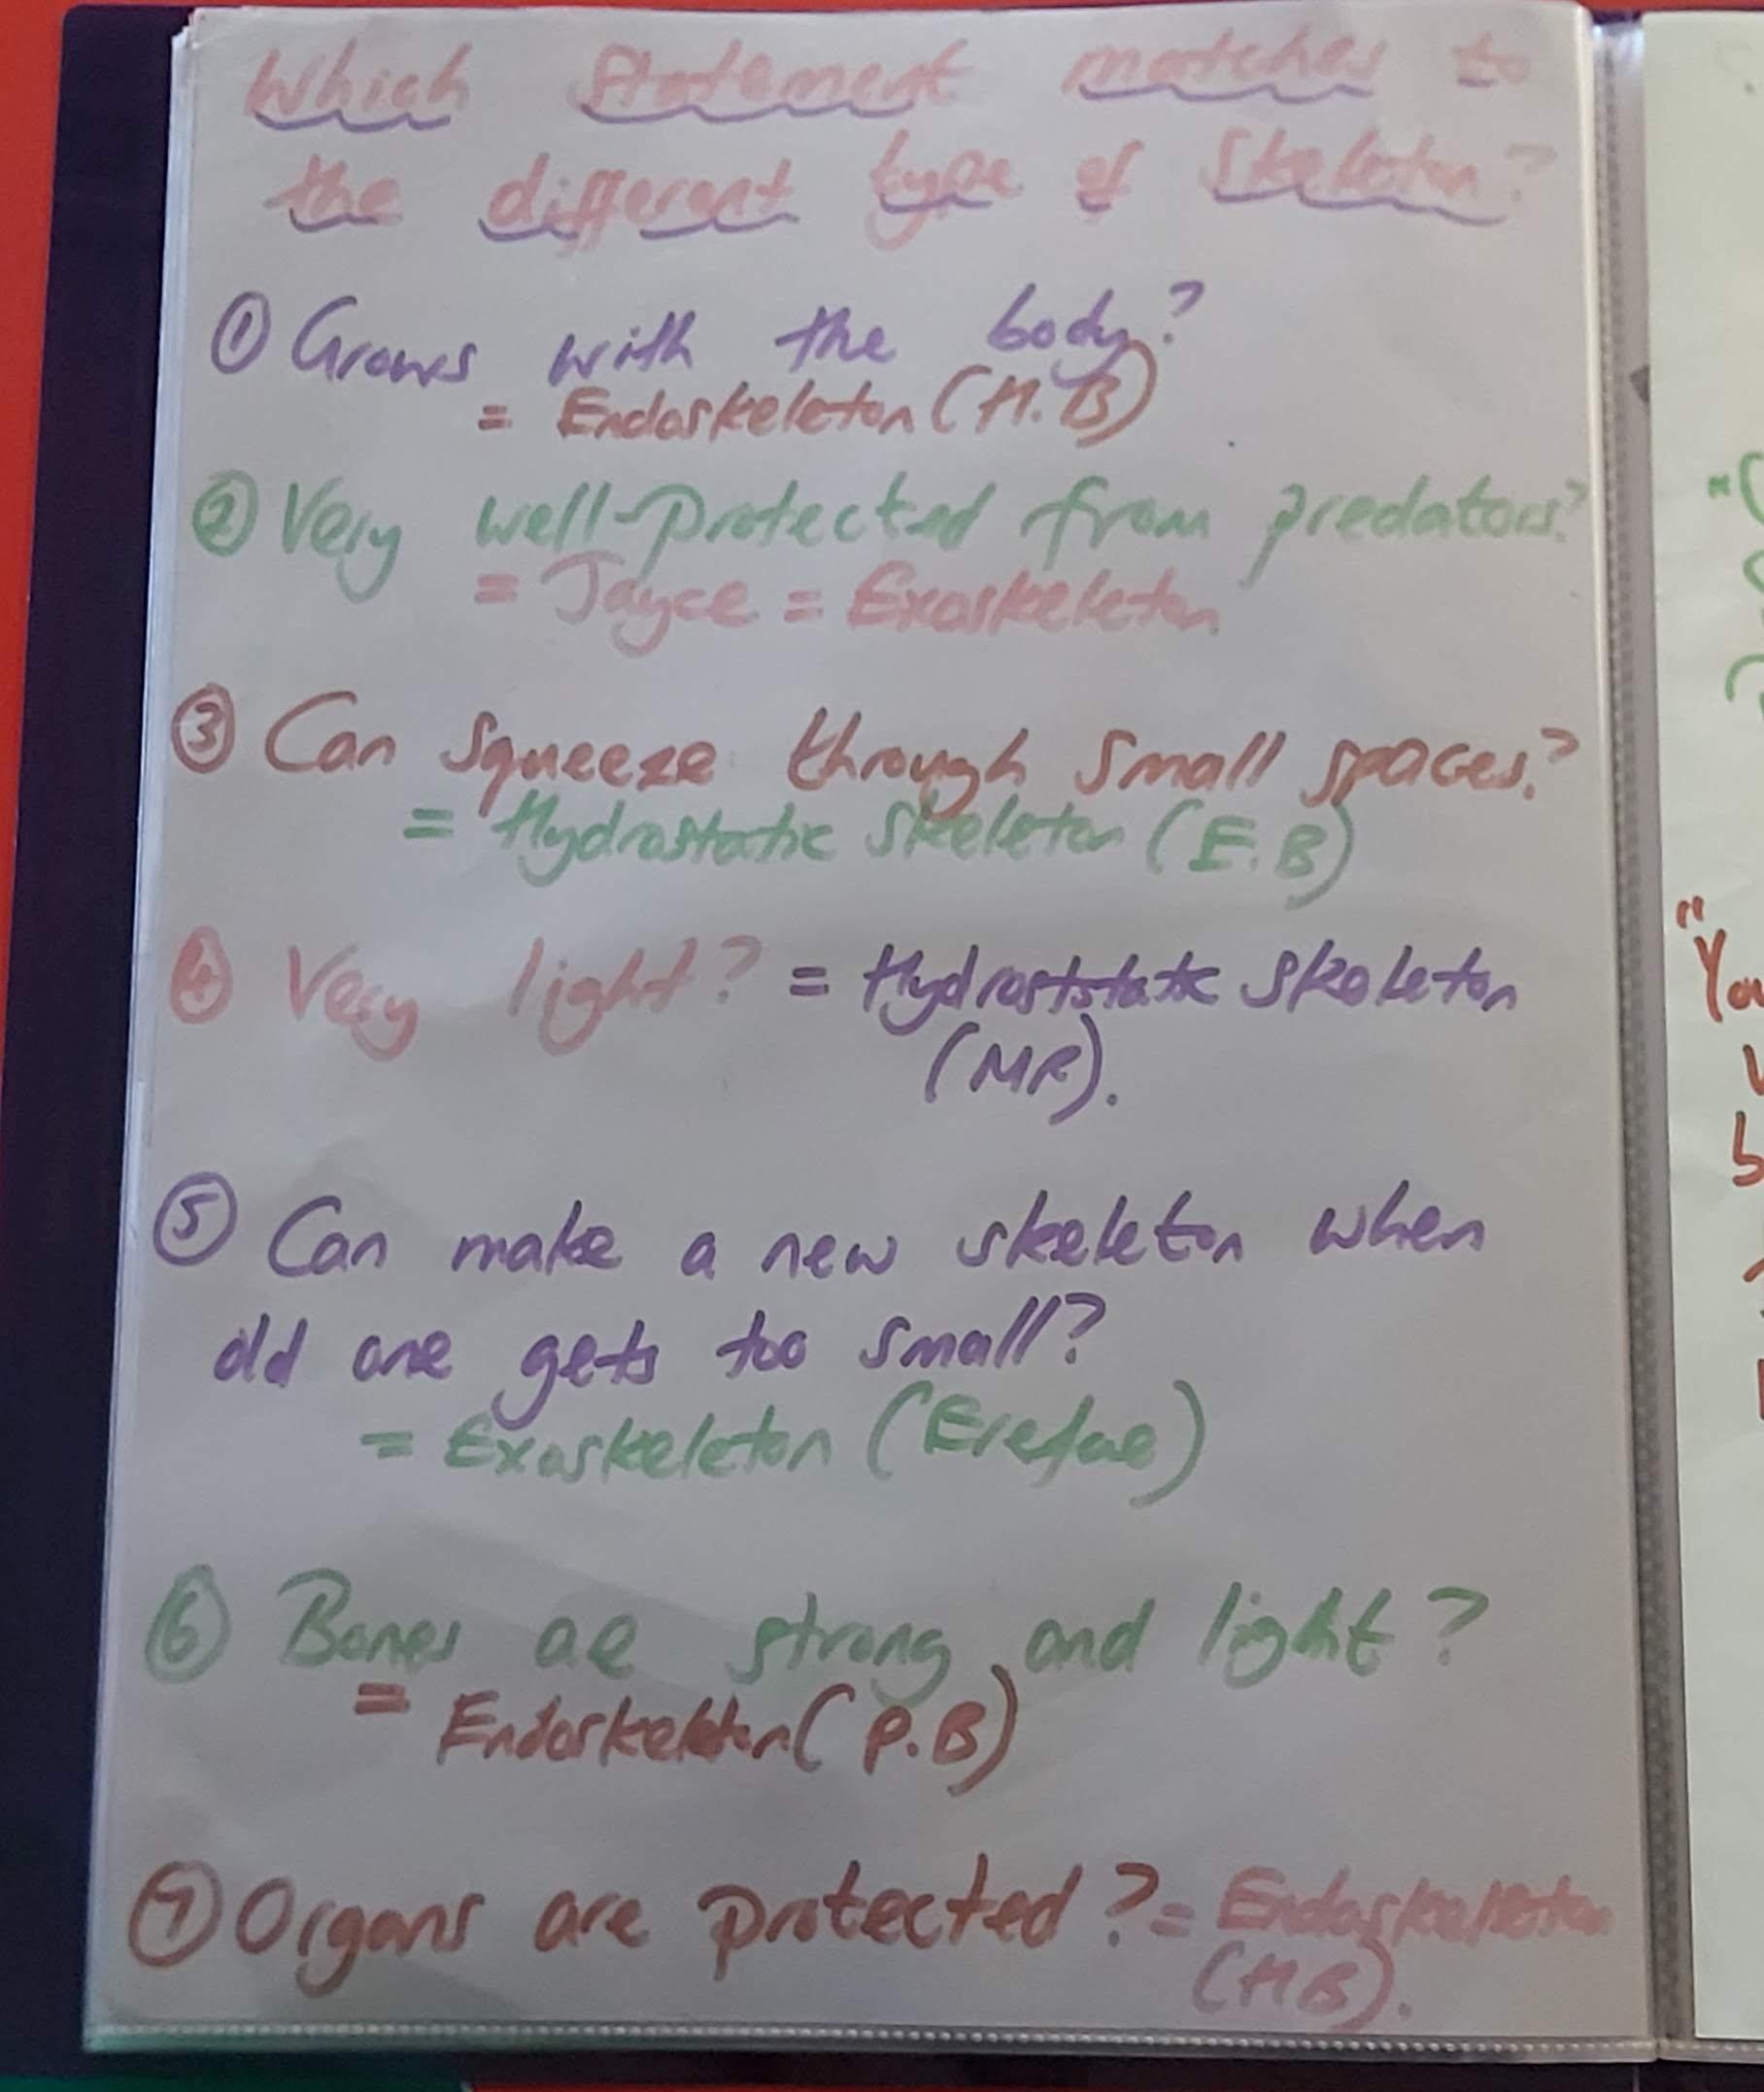 Which Statement matches to
the different type of Skeleton?
① Grows with the body?
= Endoskeleton (H.B)
② Very well-protected from predators?
= Jayce = Exoskeleton
③ Can squeeze through small spaces?
= Hydrostatic Skeleton (E.B)
④ Very light? = Hydroststatic Skeleton
(MR).
⑤ Can make a new skeleton when
old one gets too small?
= Exoskeleton (
⑥ Bones are strong and light?
= Endoskeleton (P.B)
⑦ Organs are protected? = Endoskeleton
(HB).
"You